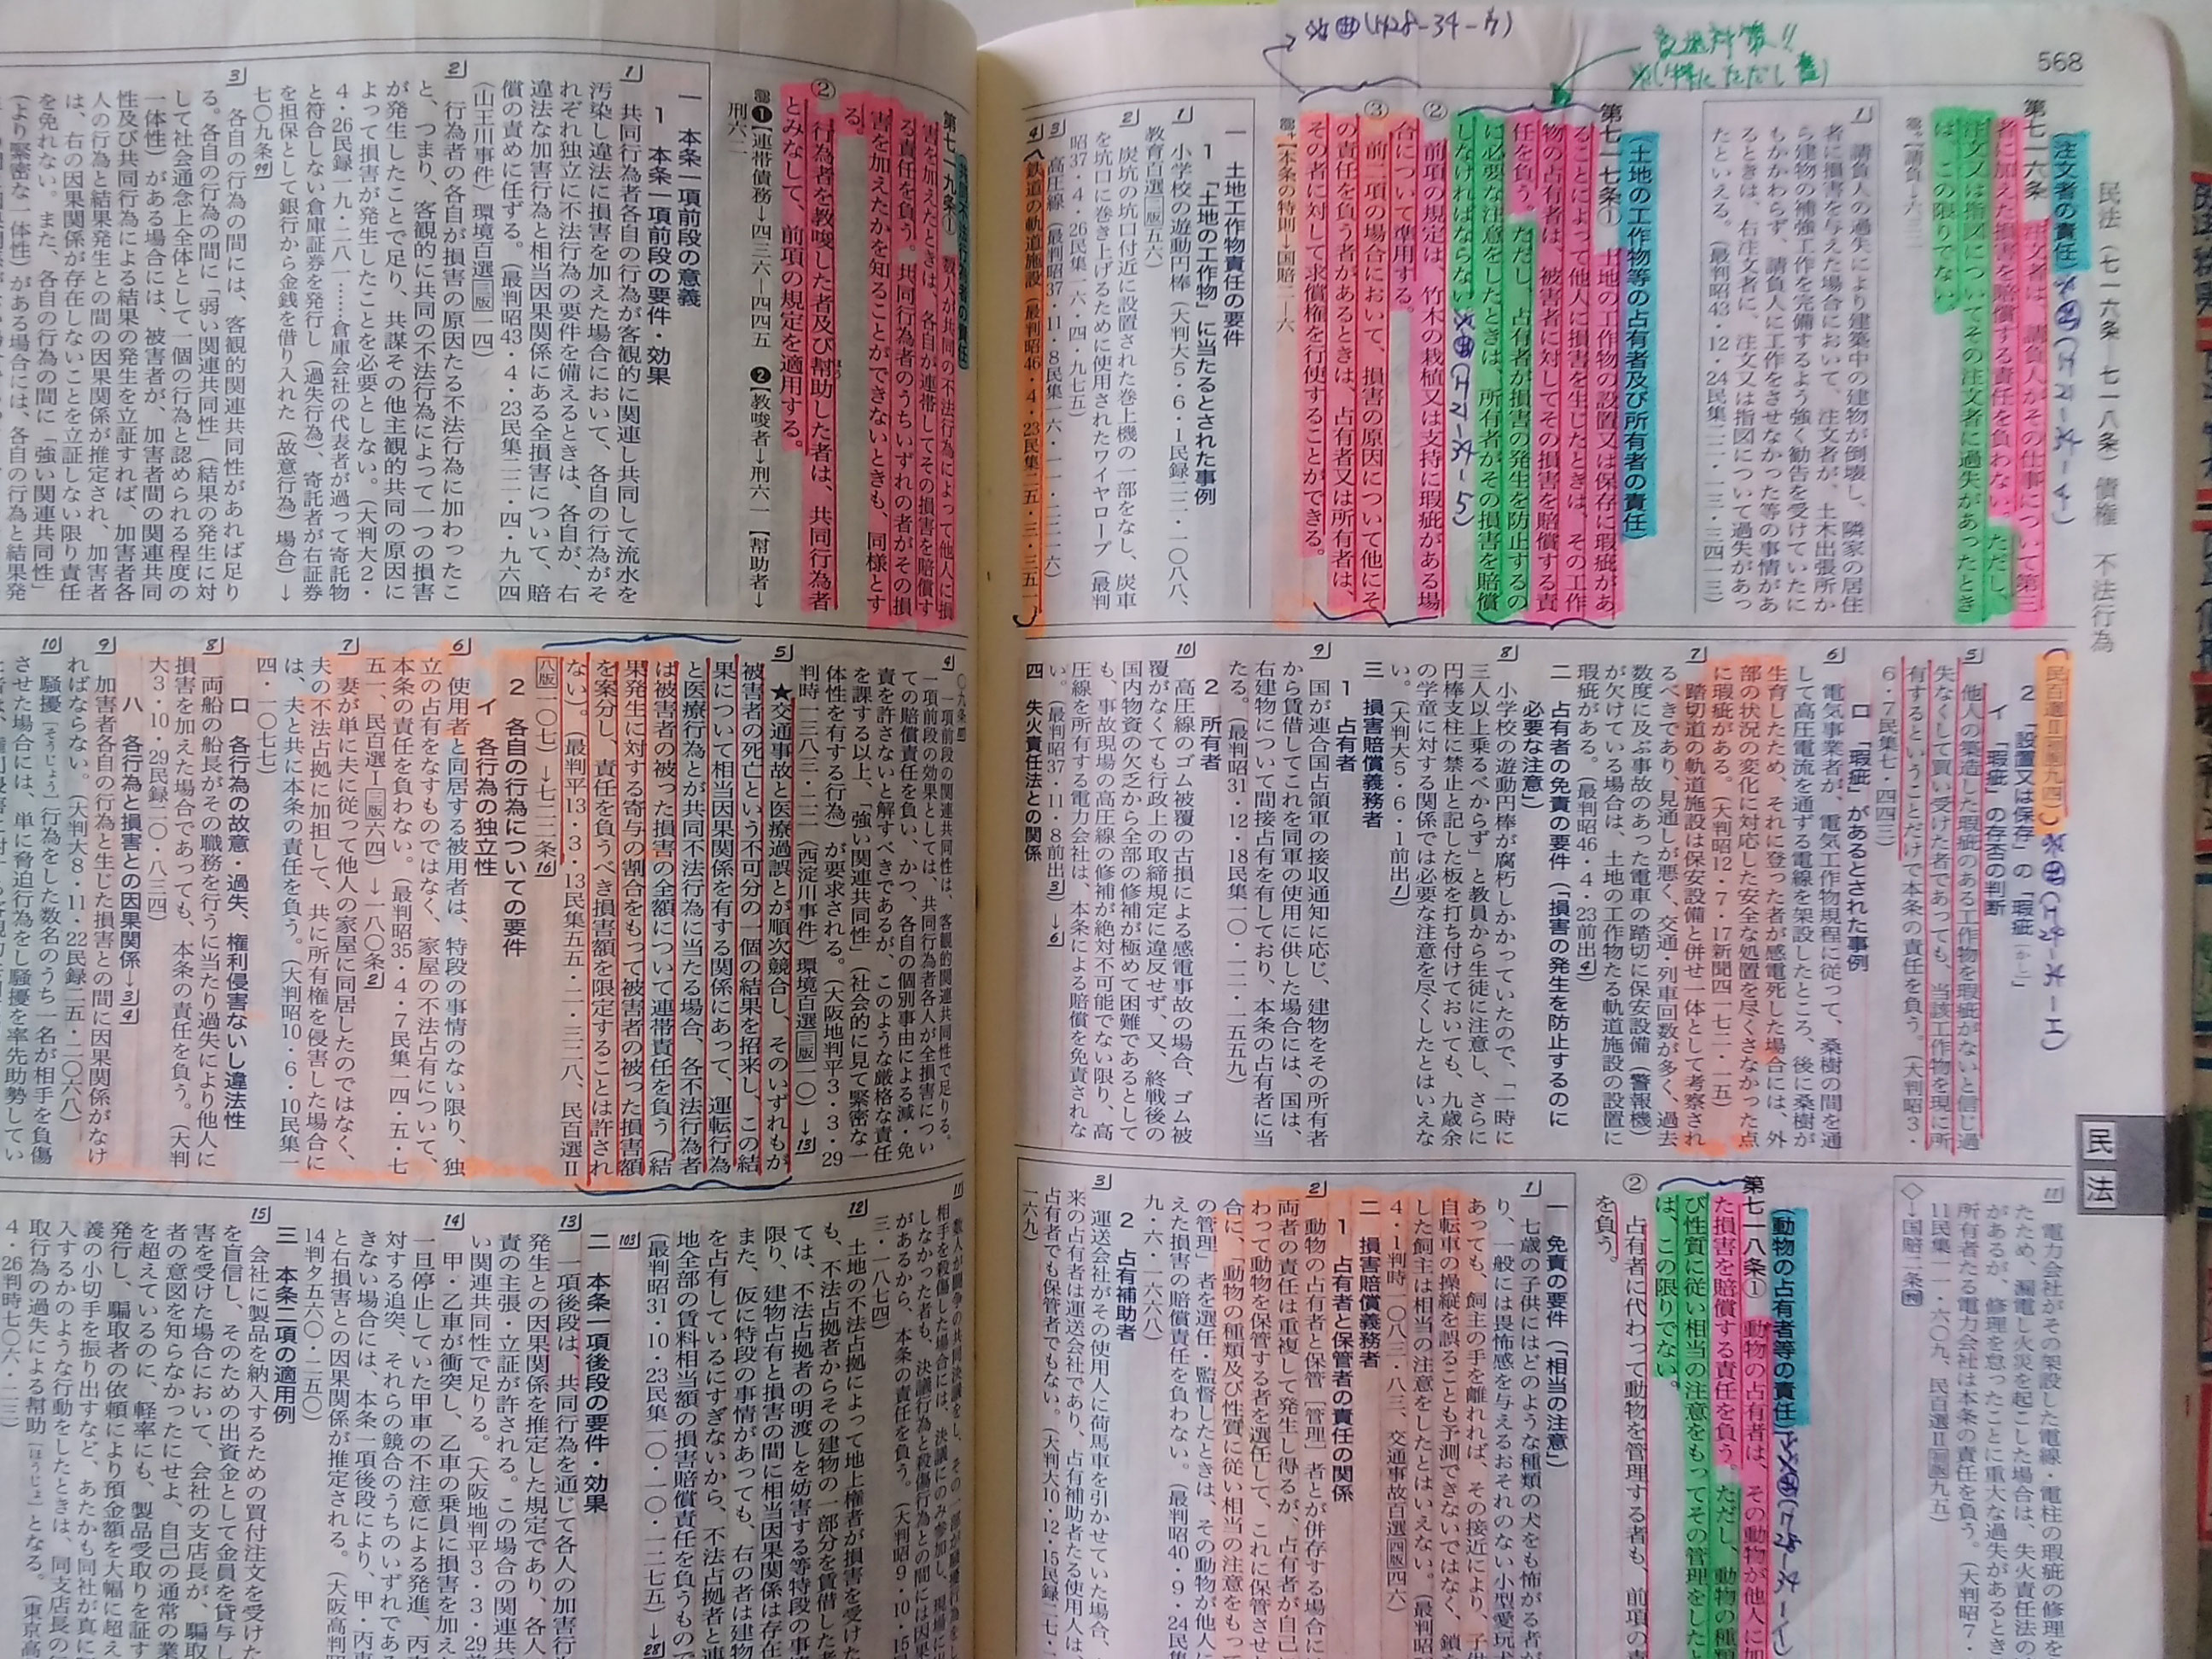 568
民法(七一六条―七一八条) 債権 不法行為
民法
(注文者の責任)
第七一六条 注文者は、請負人がその仕事について第三
者に加えた損害を賠償する責任を負わない。ただし、
注文又は指図についてその注文者に過失があったとき
は、この限りでない。
1 請負人の過失により建築中の建物が倒壊し、隣家の居住
者に損害を与えた場合において、注文者が、土木出張所か
ら建物の補強工作を完備するよう強く勧告を受けていたに
もかかわらず、請負人に工作をさせなかった等の事情があ
るときは、右注文者に、注文又は指図について過失があっ
たといえる。(最判昭43・12・24民集二二・一三・三四一三)
(土地の工作物等の占有者及び所有者の責任)
第七一七条① 土地の工作物の設置又は保存に瑕疵があ
ることによって他人に損害を生じたときは、その工作
物の占有者は、被害者に対してその損害を賠償する責
任を負う。ただし、占有者が損害の発生を防止するの
に必要な注意をしたときは、所有者がその損害を賠償
しなければならない。
② 前項の規定は、竹木の栽植又は支持に瑕疵がある場
合について準用する。
③ 前二項の場合において、損害の原因について他にそ
の責任を負う者があるときは、占有者又は所有者は、
その者に対して求償権を行使することができる。
【本条の特則→国賠二―六
一 土地工作物責任の要件
1 「土地の工作物」に当たるとされた事例
1 小学校の遊動円棒(大判大5・6・1民録二二・一〇八八、
教育百選三版五六)
2 炭坑の坑口付近に設置された巻上機の一部をなし、炭車
を坑口に巻き上げるために使用されたワイヤロープ(最判
昭37・4・26民集一六・四・九七五)
3 高圧線(最判昭37・11・8民集一六・一一・二二一六)
4 鉄道の軌道施設(最判昭46・4・23民集二五・三・三五一、
民百選Ⅱ初版九四)
2 「設置又は保存」の「瑕疵[かし]」
イ 「瑕疵」の存否の判断
5 他人の築造した瑕疵のある工作物を瑕疵がないと信じ過
失なくして買い受けた者であっても、当該工作物を現に所
有するということだけで本条の責任を負う。(大判昭3・
6・7民集七・四四三)
ロ 「瑕疵」があるとされた事例
6 電気事業者が、電気工作物規程に従って、桑樹の間を通
して高圧電流を通ずる電線を架設したところ、後に桑樹が
生育したため、それに登った者が感電死した場合には、外
部の状況の変化に対応した安全な処置を尽くさなかった点
に瑕疵がある。(大判昭12・7・17新聞四一七二・一五)
7 踏切道の軌道施設は保安設備と併せ一体として考察され
るべきであり、見通しが悪く、交通・列車回数が多く、過去
数度に及ぶ事故のあった電車の踏切に保安設備(警報機)
が欠けている場合は、土地の工作物たる軌道施設の設置に
瑕疵がある。(最判昭46・4・23前出4)
二 占有者の免責の要件(「損害の発生を防止するのに
必要な注意」)
8 小学校の遊動円棒が腐朽しかかっていたので、「一時に
三人以上乗るべからず」と教員から生徒に注意し、さらに
円棒支柱に禁止と記した板を打ち付けておいても、九歳余
の学童に対する関係では必要な注意を尽くしたとはいえな
い。(大判大5・6・1前出1)
三 損害賠償義務者
1 占有者
9 国が連合国占領軍の接収通知に応じ、建物をその所有者
から賃借してこれを同軍の使用に供した場合には、国は、
右建物について間接占有を有しており、本条の占有者に当
たる。(最判昭31・12・18民集一〇・一二・一五五九)
2 所有者
10 高圧線のゴム被覆の古損による感電事故の場合、ゴム被
覆がなくても行政上の取締規定に違反せず、又、終戦後の
国内物資の欠乏から全部の修補が極めて困難であるとして
も、事故現場の高圧線の修補が絶対不可能でない限り、高
圧線を所有する電力会社は、本条による賠償を免責されな
い。(最判昭37・11・8前出3)→6
四 失火責任法との関係
11 電力会社がその架設した電線・電柱の瑕疵の修理を
たため、漏電し火災を起こした場合は、失火責任法の
があるが、修理を怠ったことに重大な過失があるとき
所有者たる電力会社は本条の責任を負う。(大判昭7・
11民集一一・六〇九、民百選Ⅱ初版九五)
◇→国賠一条
(動物の占有者等の責任)
第七一八条① 動物の占有者は、その動物が他人に加
た損害を賠償する責任を負う。ただし、動物の種類
び性質に従い相当の注意をもってその管理をしたと
は、この限りでない。
② 占有者に代わって動物を管理する者も、前項の責
を負う。
一 免責の要件(「相当の注意」)
1 七歳の子供にはどのような種類の犬をも怖がる者が
り、一般には畏怖感を与えるおそれのない小型愛玩犬
あっても、飼主の手を離れれば、その接近により、子供
自転車の操縦を誤ることも予測できないではなく、鎖を
した飼主は相当の注意をしたとはいえない。(最判昭
4・1判時一〇八三・八三、交通事故百選四版四六)
二 損害賠償義務者
1 占有者と保管者の責任の関係
2 動物の占有者と保管[管理]者とが併存する場合に
両者の責任は重複して発生し得るが、占有者が自己に
わって動物を保管する者を選任して、これに保管させ
合に、「動物の種類及び性質に従い相当の注意をもって
の管理」者を選任・監督したときは、その動物が他人に
えた損害の賠償責任を負わない。(最判昭40・9・24民集
九・六・一六六八)
2 占有補助者
3 運送会社がその使用人に荷馬車を引かせていた場合、
来の占有者は運送会社であり、占有補助者たる使用人は、
占有者でも保管者でもない。(大判大10・12・15民録二七・
一六九)
(共同不法行為者の責任)
第七一九条① 数人が共同の不法行為によって他人に損
害を加えたときは、各自が連帯してその損害を賠償す
る責任を負う。共同行為者のうちいずれの者がその損
害を加えたかを知ることができないときも、同様とす
る。
② 行為者を教唆した者及び幇助した者は、共同行為者
とみなして、前項の規定を適用する。
❶【連帯債務→四三六―四四五 ❷【教唆者→刑六一【幇助者→
刑六二
一 本条一項前段の意義
1 本条一項前段の要件・効果
1 共同行為者各自の行為が客観的に関連し共同して流水を
汚染し違法に損害を加えた場合において、各自の行為がそ
れぞれ独立に不法行為の要件を備えるときは、各自が、右
違法な加害行為と相当因果関係にある全損害について、賠
償の責めに任ずる。(最判昭43・4・23民集二二・四・九六四
(山王川事件)環境百選三版一四)
2 行為者の各自が損害の原因たる不法行為に加わったこ
と、つまり、客観的に共同の不法行為によって一つの損害
が発生したことで足り、共謀その他主観的共同の原因に
よって損害が発生したことを必要としない。(大判大2・
4・26民録一九・二八一……倉庫会社の代表者が過って寄託物
と符合しない倉庫証券を発行し(過失行為)、寄託者が右証券
を担保として銀行から金銭を借り入れた(故意行為)場合)→
七〇九条99
3 各自の行為の間には、客観的関連共同性があれば足り
る。各自の行為の間に「弱い関連共同性」(結果の発生に対
して社会通念上全体として一個の行為と認められる程度の
一体性)がある場合には、被害者が、加害者間の関連共同
性及び共同行為による結果の発生を立証すれば、加害者各
人の行為と結果発生との間の因果関係が推定され、加害者
は、右の因果関係が存在しないことを立証しない限り責任
を免れない。また、各自の行為の間に「強い関連共同性」
(より緊密な一体性)がある場合には、各自の行為と結果発
4 一項前段の関連共同性は、客観的関連共同性で足りる。
一項前段の効果としては、共同行為者各人が全損害につい
ての賠償責任を負い、かつ、各自の個別事由による減・免
責を許さないと解すべきであるが、このような厳格な責任
を課する以上、「強い関連共同性」(社会的に見て緊密な一
体性を有する行為)が要求される。(大阪地判平3・3・29
判時一三八三・二二(西淀川事件)環境百選三版一〇)→13
5 ★交通事故と医療過誤とが順次競合し、そのいずれもが
被害者の死亡という不可分の一個の結果を招来し、この結
果について相当因果関係を有する関係にあって、運転行為
と医療行為とが共同不法行為に当たる場合、各不法行為者
は被害者の被った損害の全額について連帯責任を負う(結
果発生に対する寄与の割合をもって被害者の被った損害額
を案分し、責任を負うべき損害額を限定することは許され
ない)。(最判平13・3・13民集五五・二・三二八、民百選Ⅱ
八版一〇七)→七二二条16
2 各自の行為についての要件
イ 各行為の独立性
6 使用者と同居する被用者は、特段の事情のない限り、独
立の占有をなすものではなく、家屋の不法占有について、
本条の責任を負わない。(最判昭35・4・7民集一四・五・七
五一、民百選Ⅰ三版六四)→一八〇条2
7 妻が単に夫に従って他人の家屋に同居したのではなく、
夫の不法占拠に加担して、共に所有権を侵害した場合に
は、夫と共に本条の責任を負う。(大判昭10・6・10民集一
四・一〇七七)
ロ 各行為の故意・過失、権利侵害ないし違法性
8 両船の船長がその職務を行うに当たり過失により他人に
損害を加えた場合であっても、本条の責任を負う。(大判
大3・10・29民録二〇・八三四)
ハ 各行為と損害との因果関係→3 4
9 加害者各自の行為と生じた損害との間に因果関係がなけ
ればならない。(大判大8・11・22民録二五・二〇六八)
10 騒擾[そうじょう]行為をした数名のうち一名が相手を負傷
させた場合には、単に脅迫行為をし騒擾を率先助勢してい
相手を殺傷した場合には、決議にのみ参加し、現場に
しなかった者も、決議行為と殺傷行為との間には因果
があるから、本条の責任を負う。(大判昭9・10・15
三・一八七四)
12 土地の不法占拠によって地上権者が損害を受けた
も、不法占拠者からその建物の一部分を賃借した者
ては、不法占拠者の明渡しを妨害する等特段の事情
限り、建物占有と損害の間に相当因果関係は存在
また、仮に特段の事情があっても、右の者は建物
を占有しているにすぎないから、不法占拠者と連
地全部の賃料相当額の損害賠償責任を負うもので
(最判昭31・10・23民集一〇・一〇・一二七五)→28
103
二 本条一項後段の要件・効果
13 一項後段は、共同行為を通じて各人の加害行
発生との因果関係を推定した規定であり、各人
責の主張・立証が許される。この場合の関連共
い関連共同性で足りる。(大阪地判平3・3・29前
14 甲・乙車が衝突し、乙車の乗員に損害を加え
一旦停止していた甲車の不注意による発進、丙車
対する追突、それらの競合のうちのいずれであ
きない場合には、本条一項後段により、甲・丙車
と右損害との因果関係が推定される。(大阪高判昭
14判タ五六〇・二五〇)
三 本条二項の適用例
15 会社に製品を納入するための買付注文を受けた
を盲信し、そのための出資金として金員を貸与し
害を受けた場合において、会社の支店長が、騙取
者の意図を知らなかったにせよ、自己の通常の業
を超えているのに、軽率にも、製品受取りを証す
発行し、騙取者の依頼により預金額を大幅に超え
義の小切手を振り出すなど、あたかも同社が真に
入するかのような行動をしたときは、同支店長の行
取行為の過失による幇助[ほうじょ]となる。(東京高
4・26判時七〇六・二三)